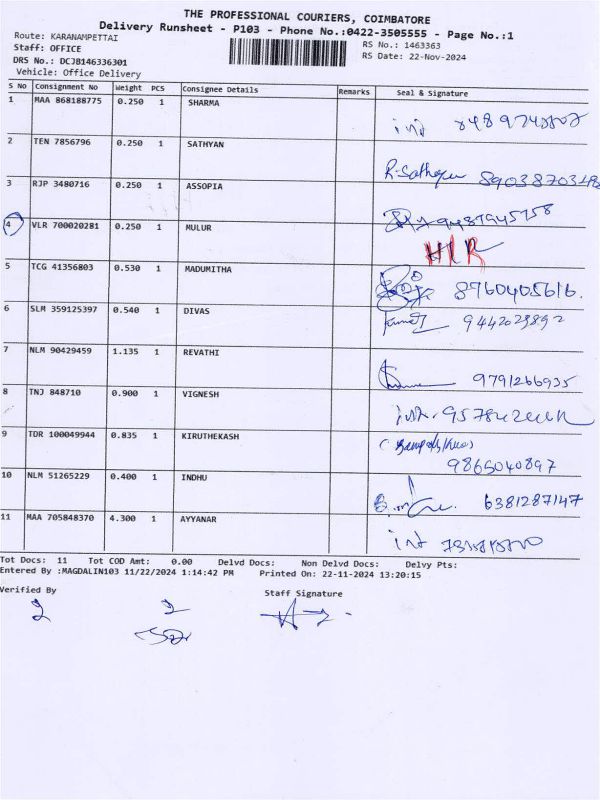 THE PROFESSIONAL COURIERS, COIMBATORE
Delivery Runsheet - P103 - Phone No.:0422-3505555 - Page No.:1
Route: KARANAMPETTAI
RS No.: 1463363
Staff: OFFICE
RS Date: 22-Nov-2024
DRS No.: DCJB146336301
Vehicle: Office Delivery
S No Consignment No Weight PCS Consignee Details Remarks Seal & Signature
1 MAA 868188775 0.250 1 SHARMA
2 TEN 7856796 0.250 1 SATHYAN
R. 
3 RJP 3480716 0.250 1 ASSOPIA
4 VLR 700020281 0.250 1 MULUR
5 TCG 41356803 0.530 1 MADUMITHA
8960405616.
6 SLM 359125397 0.540 1 DIVAS
7 NLM 90429459 1.135 1 REVATHI
9791266935
8 TNJ 848710 0.900 1 VIGNESH
9 TDR 100049944 0.835 1 KIRUTHEKASH
9865040897
10 NLM 51265229 0.400 1 INDHU
6381287147
11 MAA 705848370 4.300 1 AYYANAR
Tot Docs: 11 Tot COD Amt: 0.00 Delvd Docs: Non Delvd Docs: Delvy Pts:
Entered By :MAGDALIN103 11/22/2024 1:14:42 PM Printed On: 22-11-2024 13:20:15
Verified By
Staff Signature